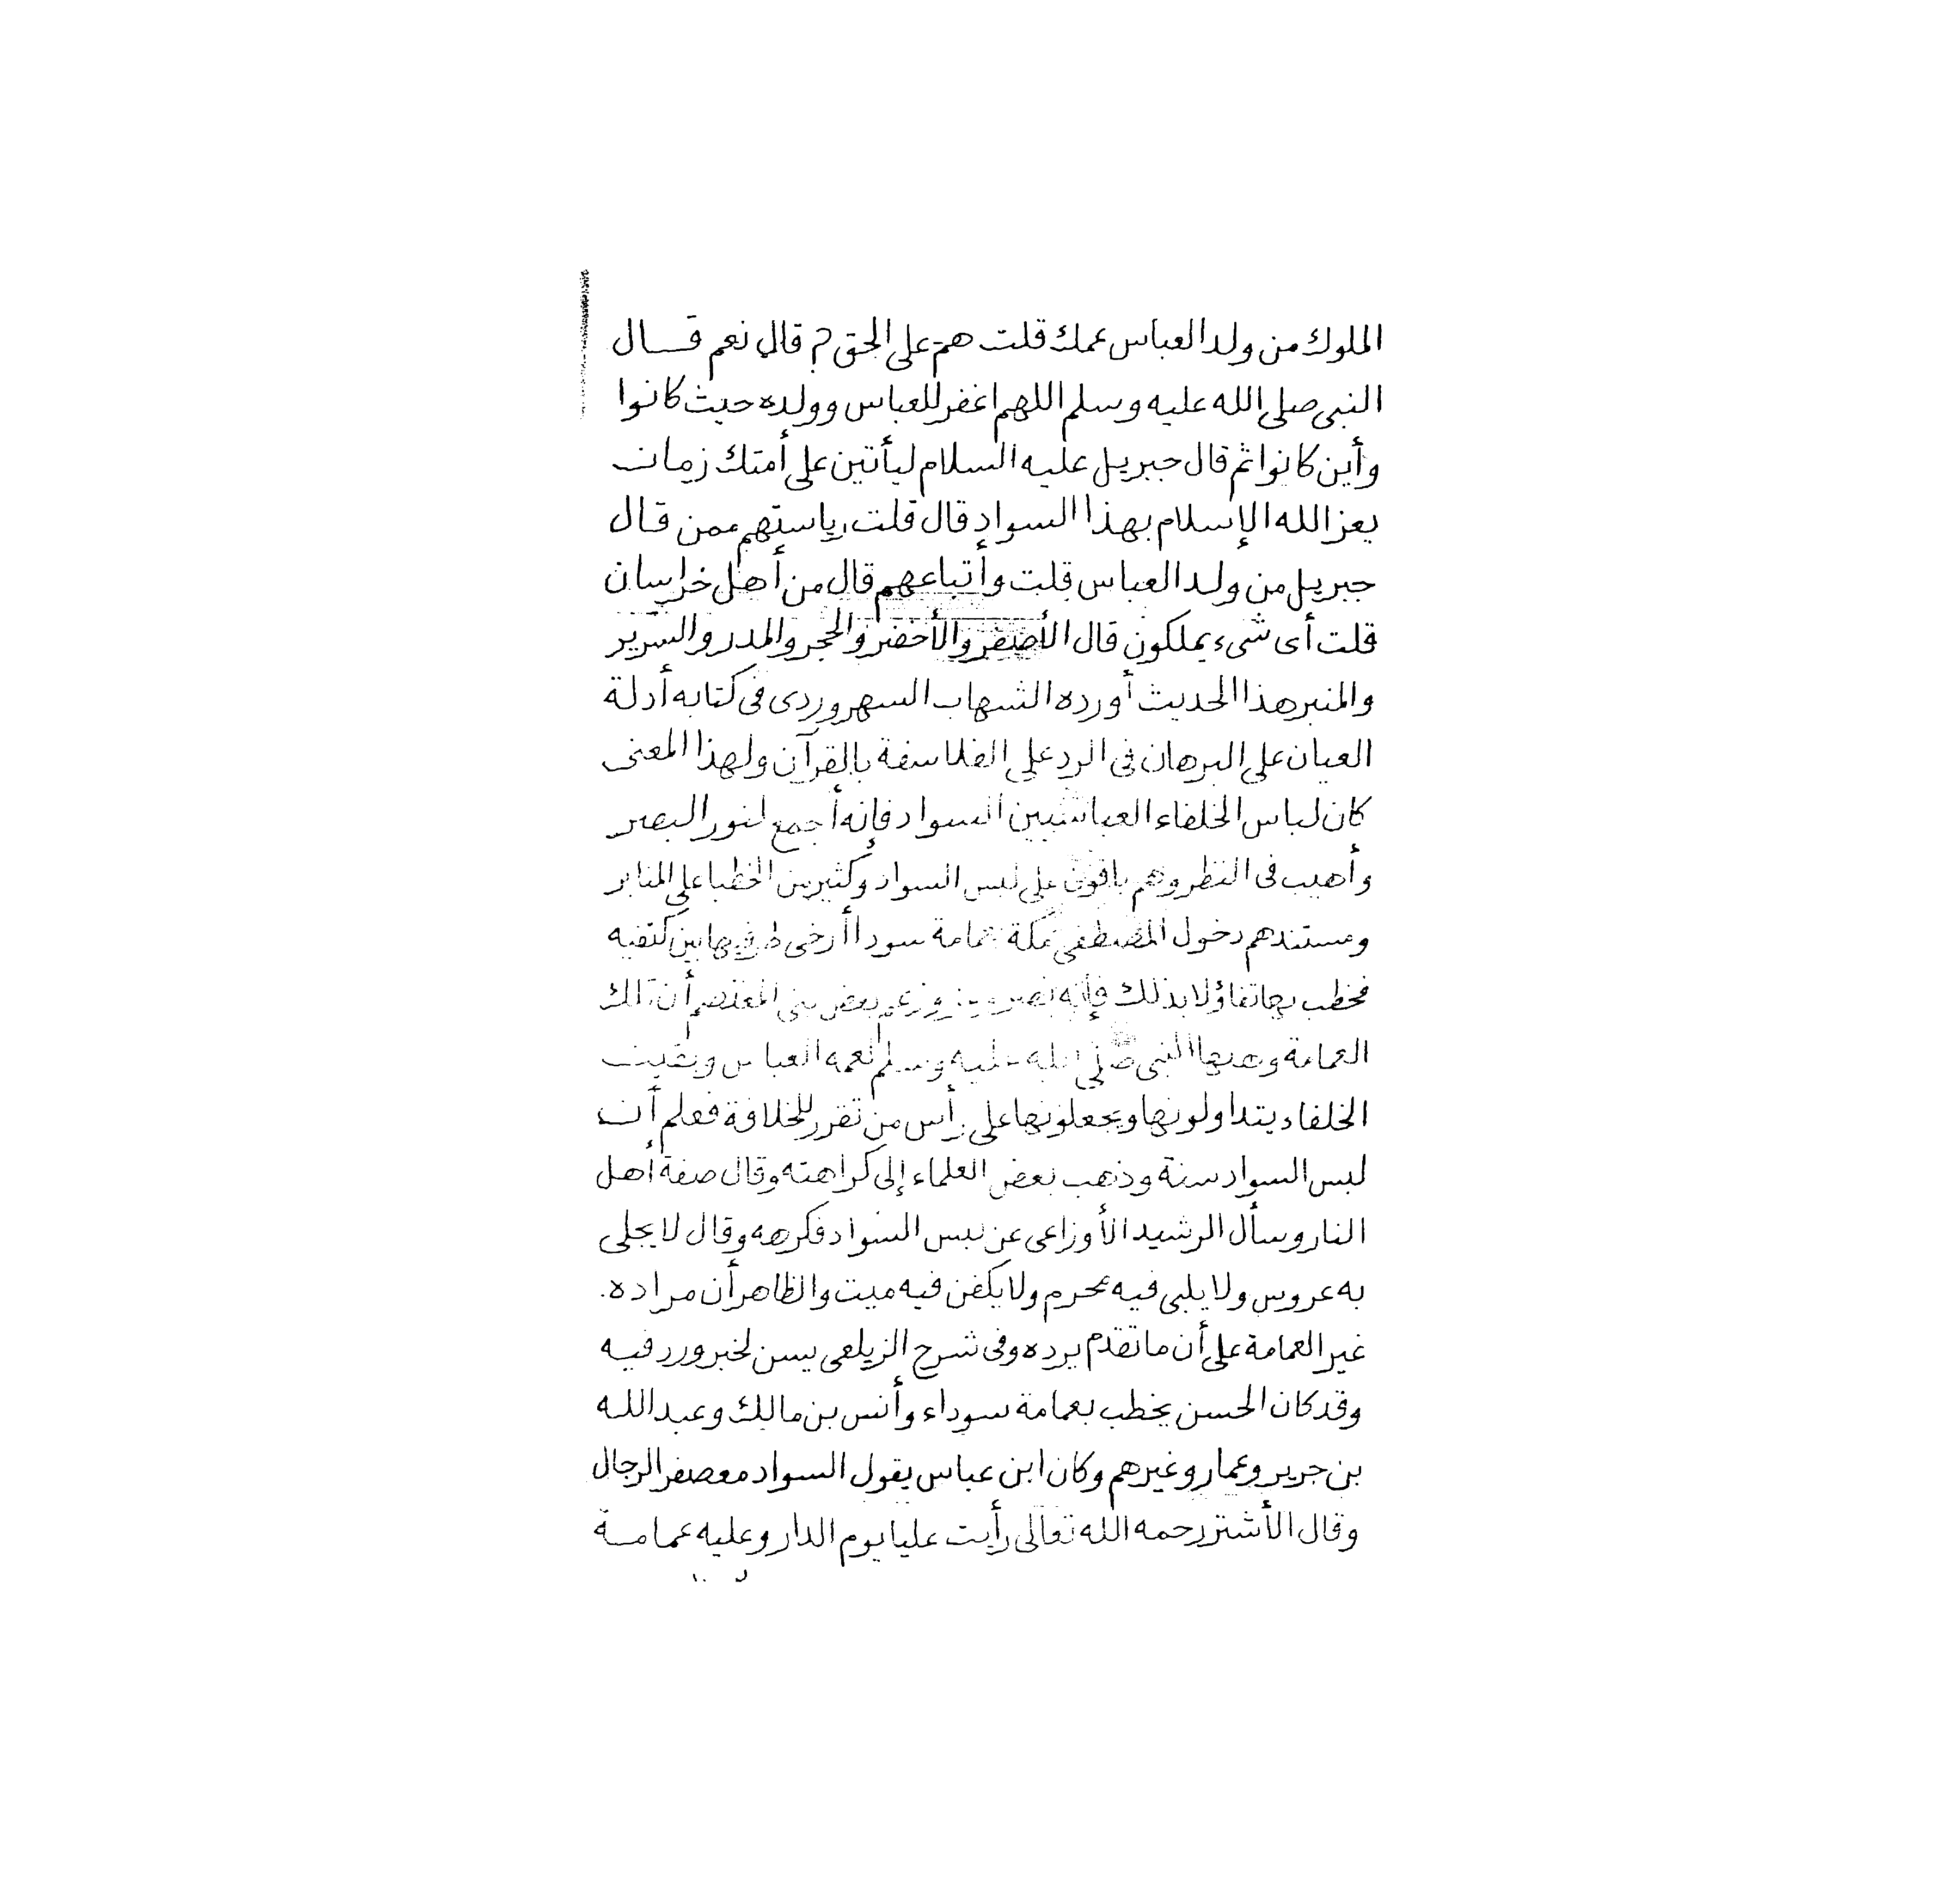 الملوك من ولد العباس عمك قلت هم على الحق؟ قال نعم قال
النبى صلى الله عليه وسلم اللهم اغفر للعباس وولده حيث كانوا
وأين كانوا ثم قال جبريل عليه السلام ليأتين على أمتك زمان
يعز الله الإسلام بهذا السواد قال قلت رياستهم ممن قال
جبريل من ولد العباس قلت وأتباعهم قال من أهل خراسان
قلت أى شىء يملكون قال الأصفر والأخضر والحجر والمدر والسرير
والمنبر هذا الحديث أورده الشهاب السهروردى فى كتابه أدلة
العيان على البرهان فى الرد على الفلاسفة بالقرآن ولهذا المعنى
كان لباس الخلفاء العباسيين السواد فإنه أجمع لنور البصر
وأهيب فى النظر وهم باقون على لبس السواد وكثير من الخطبا على المنابر
ومستندهم دخول المصطفى مكة بعمامة سودا أرخى طرفيها بين كتفيه
فخطب بها تفاؤلا بذلك فإنه نصر وزعم بعض بنى المعتصم أن تلك
العمامة وهبها النبى صلى الله عليه وسلم لعمه العباس وبقيت
الخلفاء يتداولونها ويجعلونها على رأس من تقرر للخلافة فعلم أن
لبس السواد سنة وذهب بعض العلماء إلى كراهته وقال صفة أهل
النار وسأل الرشيد الأوزاعى عن لبس السواد فكرهه وقال لا يجلى
به عروس ولا يلبى فيه محرم ولا يكفن فيه ميت والظاهر أن مراده
غير العمامة على أن ما تقدم يرده وفى شرح الزيلعى يسن لخبر ورد فيه
وقد كان الحسن يخطب بعمامة سوداء وأنس بن مالك وعبد الله
بن جرير وعمار وغيرهم وكان ابن عباس يقول السواد معصفر الرجال
وقال الأشتر رحمه الله تعالى رأيت عليا يوم الدار وعليه عمامة